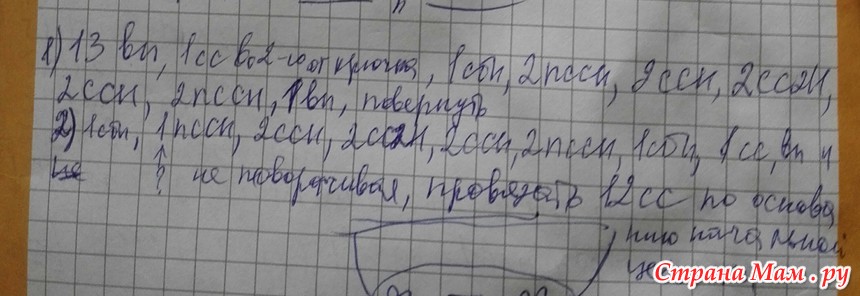 1) 13 вп, 1сс во 2-ю от крючка, 1сбн, 2пссн, 2ссн, 2сс2н,
2ссн, 2пссн, 1вп, повернуть
2) 1сбн, 1пссн, 2ссн, 2сс2н, 2ссн, 2пссн, 1сбн, 1сс, вп и
не ? не поворачивая, провязать 12сс по основа
нию начальной
це
Страна Мам.ру